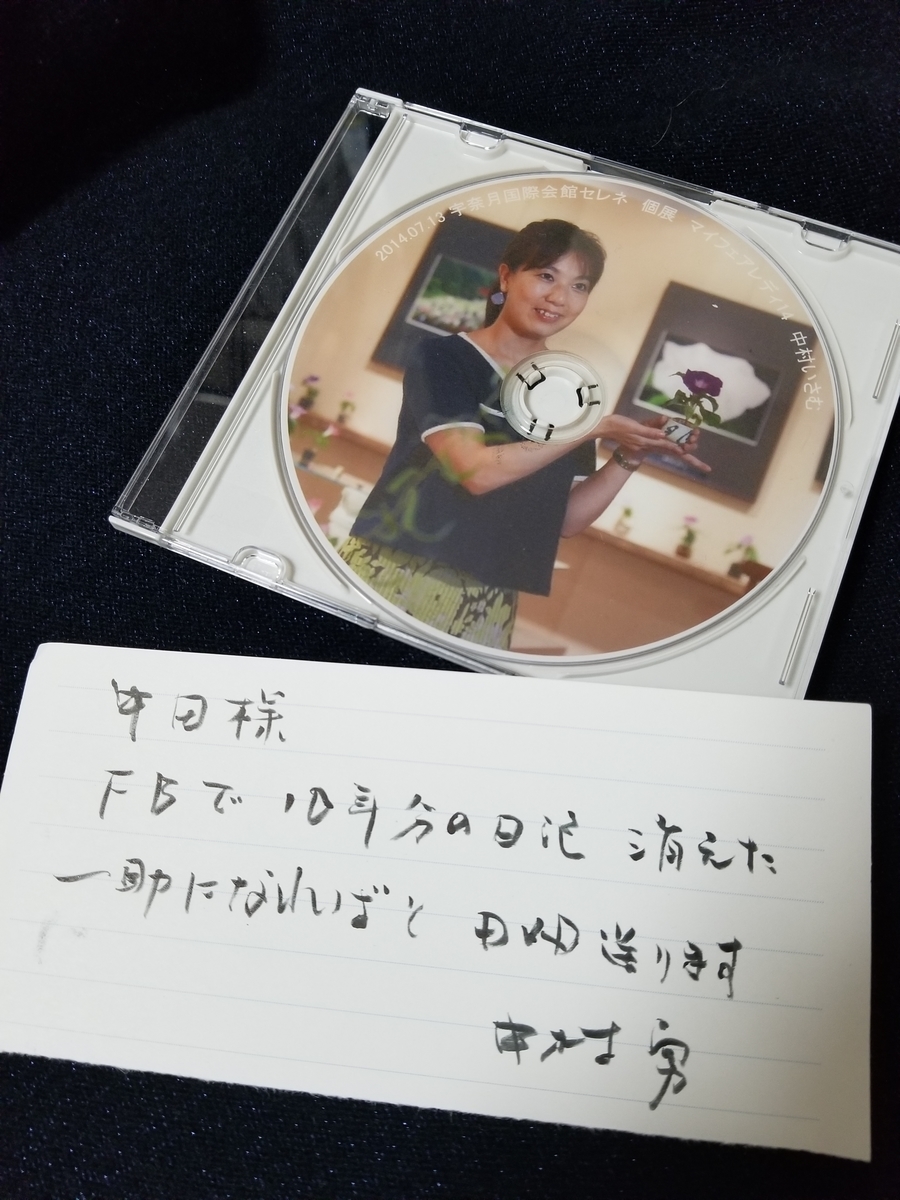 2014.07.13 宇奈月国際会館セレネ 個展 マイフェアレディ14 中村いさむ
中田様
FBで 10年分の日記 消えた
一助になればと DVD 送ります
中村 勇